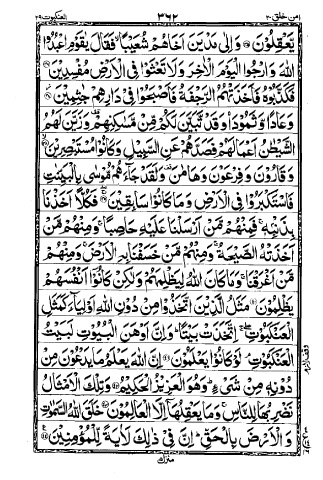 امن خلق ٢٠ ٣٦٢ العنكبوت ٢٩
يَعْقِلُوْنَ ۝ وَاِلٰى مَدْيَنَ اَخَاهُمْ شُعَيْبًا ۙ فَقَالَ يٰقَوْمِ اعْبُدُوا
اللّٰهَ وَارْجُوا الْيَوْمَ الْاٰخِرَ وَلَا تَعْثَوْا فِى الْاَرْضِ مُفْسِدِيْنَ ۝
فَكَذَّبُوْهُ فَاَخَذَتْهُمُ الرَّجْفَةُ فَاَصْبَحُوْا فِيْ دَارِهِمْ جٰثِمِيْنَ ۝
وَعَادًا وَّثَمُوْدَا۟ وَقَدْ تَّبَيَّنَ لَكُمْ مِّنْ مَّسٰكِنِهِمْ ۣ وَزَيَّنَ لَهُمُ
الشَّيْطٰنُ اَعْمَالَهُمْ فَصَدَّهُمْ عَنِ السَّبِيْلِ وَكَانُوْا مُسْتَبْصِرِيْنَ ۝
وَقَارُوْنَ وَفِرْعَوْنَ وَهَامٰنَ ۣ وَلَقَدْ جَآءَهُمْ مُّوْسٰى بِالْبَيِّنٰتِ
فَاسْتَكْبَرُوْا فِى الْاَرْضِ وَمَا كَانُوْا سٰبِقِيْنَ ۝ فَكُلًّا اَخَذْنَا
بِذَنْۢبِهٖ ۚ فَمِنْهُمْ مَّنْ اَرْسَلْنَا عَلَيْهِ حَاصِبًا ۚ وَمِنْهُمْ مَّنْ
اَخَذَتْهُ الصَّيْحَةُ ۚ وَمِنْهُمْ مَّنْ خَسَفْنَا بِهِ الْاَرْضَ ۚ وَمِنْهُمْ
مَّنْ اَغْرَقْنَا ۚ وَمَا كَانَ اللّٰهُ لِيَظْلِمَهُمْ وَلٰكِنْ كَانُوْٓا اَنْفُسَهُمْ
يَظْلِمُوْنَ ۝ مَثَلُ الَّذِيْنَ اتَّخَذُوْا مِنْ دُوْنِ اللّٰهِ اَوْلِيَآءَ كَمَثَلِ
الْعَنْكَبُوْتِ ۚ اِتَّخَذَتْ بَيْتًا ۭ وَاِنَّ اَوْهَنَ الْبُيُوْتِ لَبَيْتُ
الْعَنْكَبُوْتِ ۘ لَوْ كَانُوْا يَعْلَمُوْنَ ۝ اِنَّ اللّٰهَ يَعْلَمُ مَا يَدْعُوْنَ مِنْ
دُوْنِهٖ مِنْ شَيْءٍ ۭ وَهُوَ الْعَزِيْزُ الْحَكِيْمُ ۝ وَتِلْكَ الْاَمْثَالُ
نَضْرِبُهَا لِلنَّاسِ ۚ وَمَا يَعْقِلُهَآ اِلَّا الْعٰلِمُوْنَ ۝ خَلَقَ اللّٰهُ السَّمٰوٰتِ
وَالْاَرْضَ بِالْحَقِّ ۭ اِنَّ فِيْ ذٰلِكَ لَاٰيَةً لِّلْمُؤْمِنِيْنَ ۝
منزل